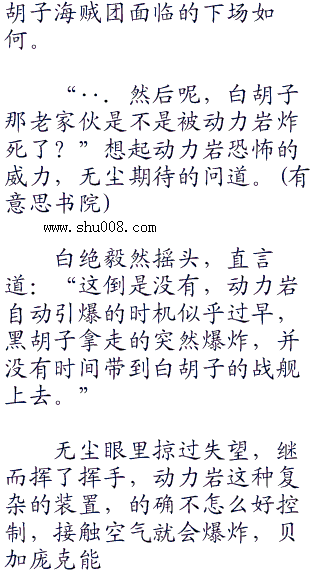 胡子海贼团面临的下场如
何。
“··．然后呢，白胡子
那老家伙是不是被动力岩炸
死了？”想起动力岩恐怖的
威力，无尘期待的问道。(有
意思书院)
www.shu008.com
白绝毅然摇头，直言
道：“这倒是没有，动力岩
自动引爆的时机似乎过早，
黑胡子拿走的突然爆炸，并
没有时间带到白胡子的战舰
上去。”
无尘眼里掠过失望，继
而挥了挥手，动力岩这种复
杂的装置，的确不怎么好控
制，接触空气就会爆炸，贝
加庞克能